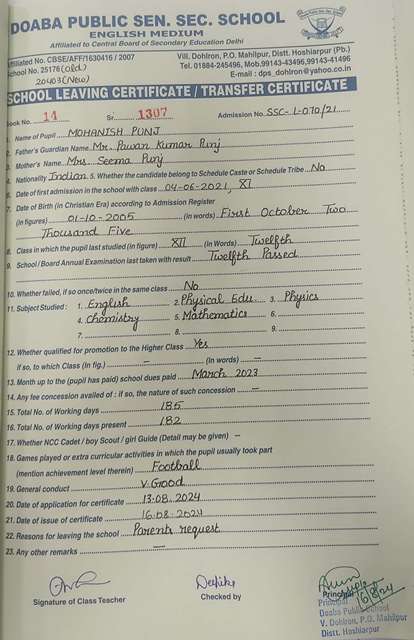 DOABA PUBLIC SEN. SEC. SCHOOL
ENGLISH MEDIUM
Affiliated to Central Board of Secondary Education Delhi
Affiliated No. CBSE/AFF/1630416 / 2007
Vill. Dohlron, P.O. Mahilpur, Distt. Hoshiarpur (Pb.)
School No. 25176 (old)
Tel. 01884-245496, Mob.99143-43496,99143-41496
20403 (New)
E-mail : dps_dohlron@yahoo.co.in
SCHOOL LEAVING CERTIFICATE / TRANSFER CERTIFICATE
Book No. 14 Sr. 1307 Admission No. SSC-L-070/21
1. Name of Pupil MOHANISH PUNJ
2. Father's Guardian Name Mr. Pawan Kumar Punj
3. Mother's Name Mrs Seema Punj
4. Nationality Indian 5. Whether the candidate belong to Schedule Caste or Schedule Tribe No
6. Date of first admission in the school with class 04-06-2021, XI
7. Date of Birth (in Christian Era) according to Admission Register
(in figures) 01-10-2005 (in words) First October Two
Thousand Five
8. Class in which the pupil last studied (in figure) XII (in Words) Twelfth
9. School / Board Annual Examination last taken with result Twelfth Passed
10. Whether failed, if so once/twice in the same class No
11. Subject Studied : 1. English 2. Physical Edu. 3. Physics
4. Chemistry 5. Mathematics 6.
7. 8. 9.
12. Whether qualified for promotion to the Higher Class Yes
if so, to which Class (In fig.) – (In words) –
13. Month up to the (pupil has paid) school dues paid March 2023
14. Any fee concession availed of : if so, the nature of such concession –
15. Total No. of Working days 185
16. Total No. of Working days present 182
17. Whether NCC Cadet / boy Scout / girl Guide (Detail may be given) –
18. Games played or extra curricular activities in which the pupil usually took part
(mention achievement level therein) Football
19. General conduct V. Good
20. Date of application for certificate 13.08.2024
21. Date of issue of certificate 16.08.2024
22. Reasons for leaving the school Parents request
23. Any other remarks –
Signature of Class Teacher
Checked by
Principal
16/8/24
Principal
Doaba Public School
V. Dohlron, P.O. Mahilpur
Distt. Hoshiarpur